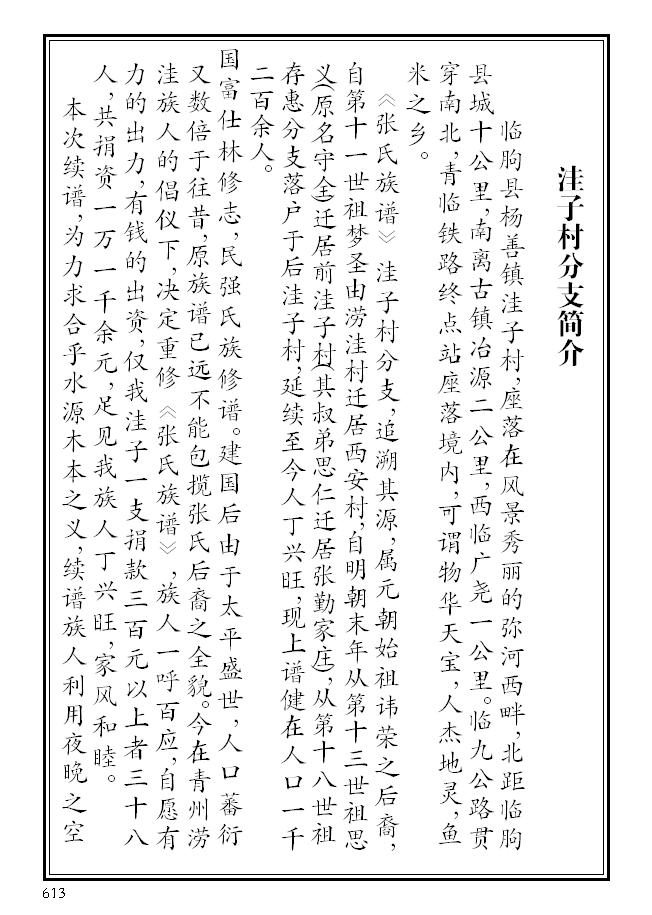 洼子村分支简介
临朐县杨善镇洼子村,座落在风景秀丽的弥河西畔,北距临朐
县城十公里,南离古镇冶源二公里,西临广尧一公里。临九公路贯
穿南北,青临铁路终点站座落境内,可谓物华天宝,人杰地灵,鱼
米之乡。
《张氏族谱》洼子村分支,追溯其源,属元朝始祖讳荣之后裔,
自第十一世祖梦圣由涝洼村迁居西安村,自明朝末年从第十三世祖思
义(原名守全)迁居前洼子村(其叔弟思仁迁居张勤家庄),从第十八世祖
存惠分支落户于后洼子村,延续至今人丁兴旺,现上谱健在人口一千
二百余人。
国富仕林修志,民强氏族修谱。建国后由于太平盛世,人口蕃衍
又数倍于往昔,原族谱已远不能包揽张氏后裔之全貌。今在青州涝
洼族人的倡仪下,决定重修《张氏族谱》,族人一呼百应,自愿有
力的出力,有钱的出资,仅我洼子一支捐款三百元以上者三十八
人,共捐资一万一千余元,足见我族人丁兴旺,家风和睦。
本次续谱,为力求合乎水源木本之义,续谱族人利用夜晚之空
613